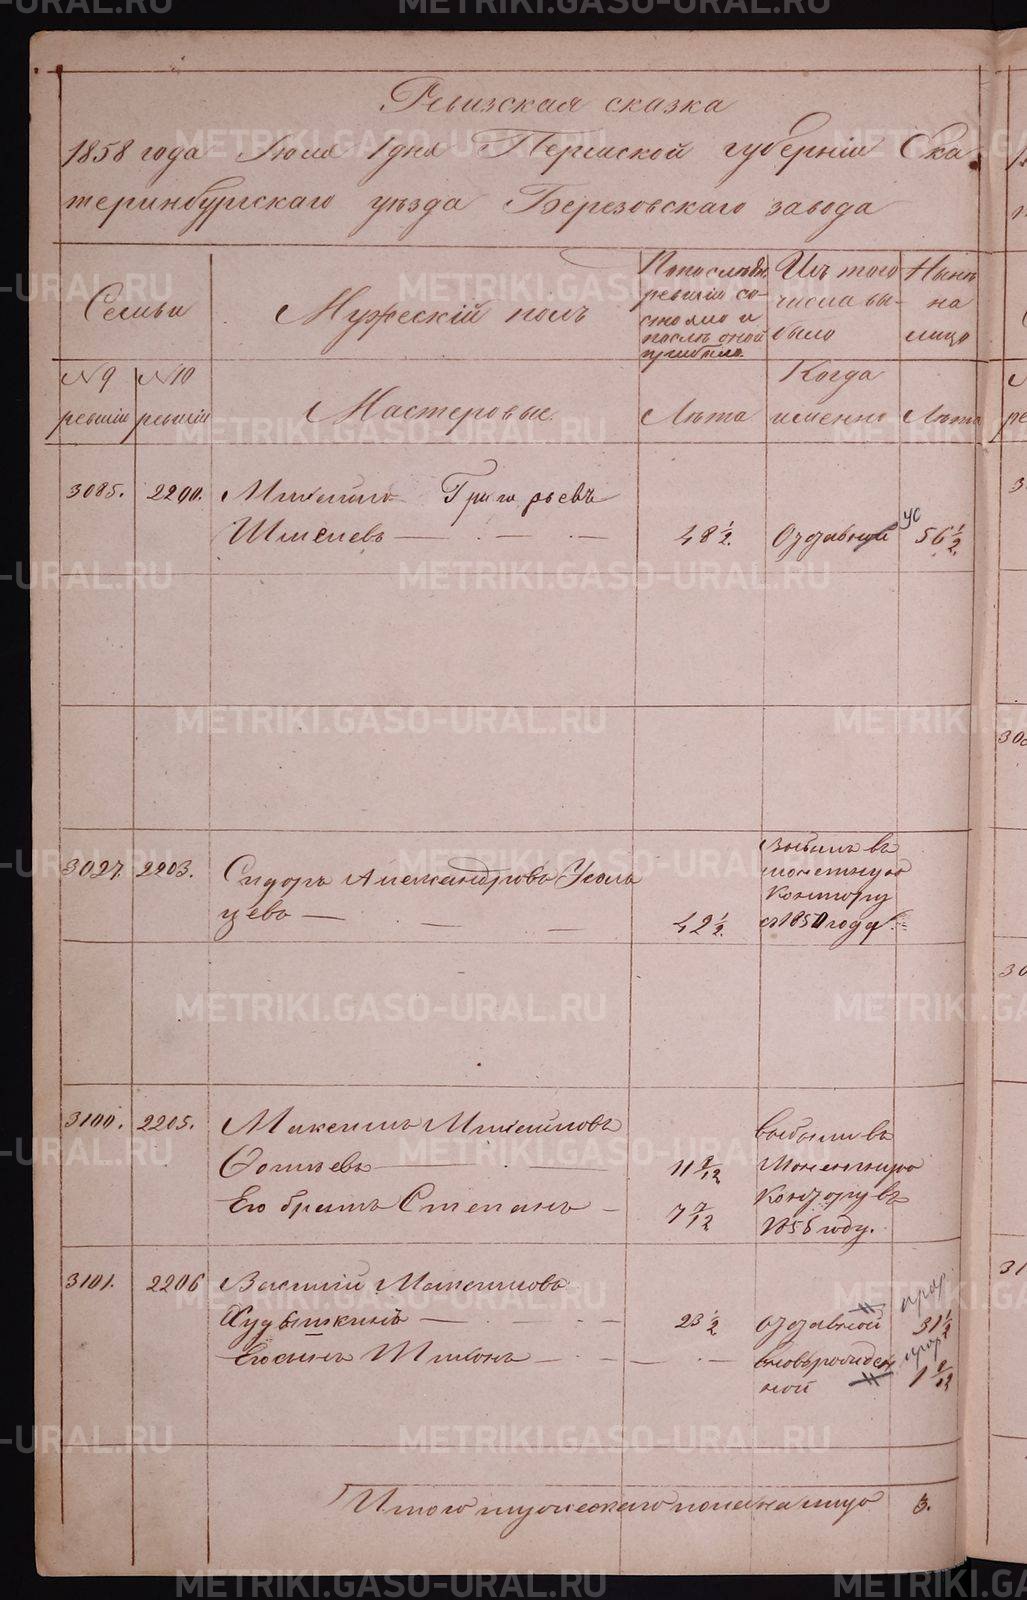 Ревизская сказка
1858 года Июля 1 дня Пермской губерніи Ека
теринбургскаго уѣзда Березовскаго завода
Семьи
Мужескій полъ
По послѣдн.
ревизіи со-
стояло и
послѣ оной
прибыло
Изъ того
числа вы-
было
Нынѣ
на
лицо
№ 9
ревизіи
№ 10
ревизіи
Мастеровые
Лѣта
Когда
именно
Лѣта
3085. 2200. Михайло Григорьевъ
Шмелевъ 48 1/2. Отставной ус 56 1/2.
3097. 2203. Сидоръ Александровъ Усоль
цевъ 42 1/2.
выбылъ въ
монетную
контору
съ 1850 года.
3100. 2205. Максимъ Михайловъ
11 9/12
Его братъ Степанъ 7 7/12
выбыли въ
Монетную
Контору въ
1855 году.
3101. 2206 Василій Максимовъ
Худышкинъ 23 1/2 отставной 31 1/2
Его сынъ
вноворожден
ной
Итого мужескаго пола на лицо 3.
METRIKI.GASO-URAL.RU